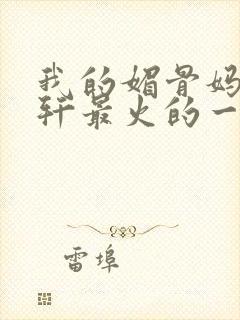 我的媚骨妈
轩最火的一
雷埠